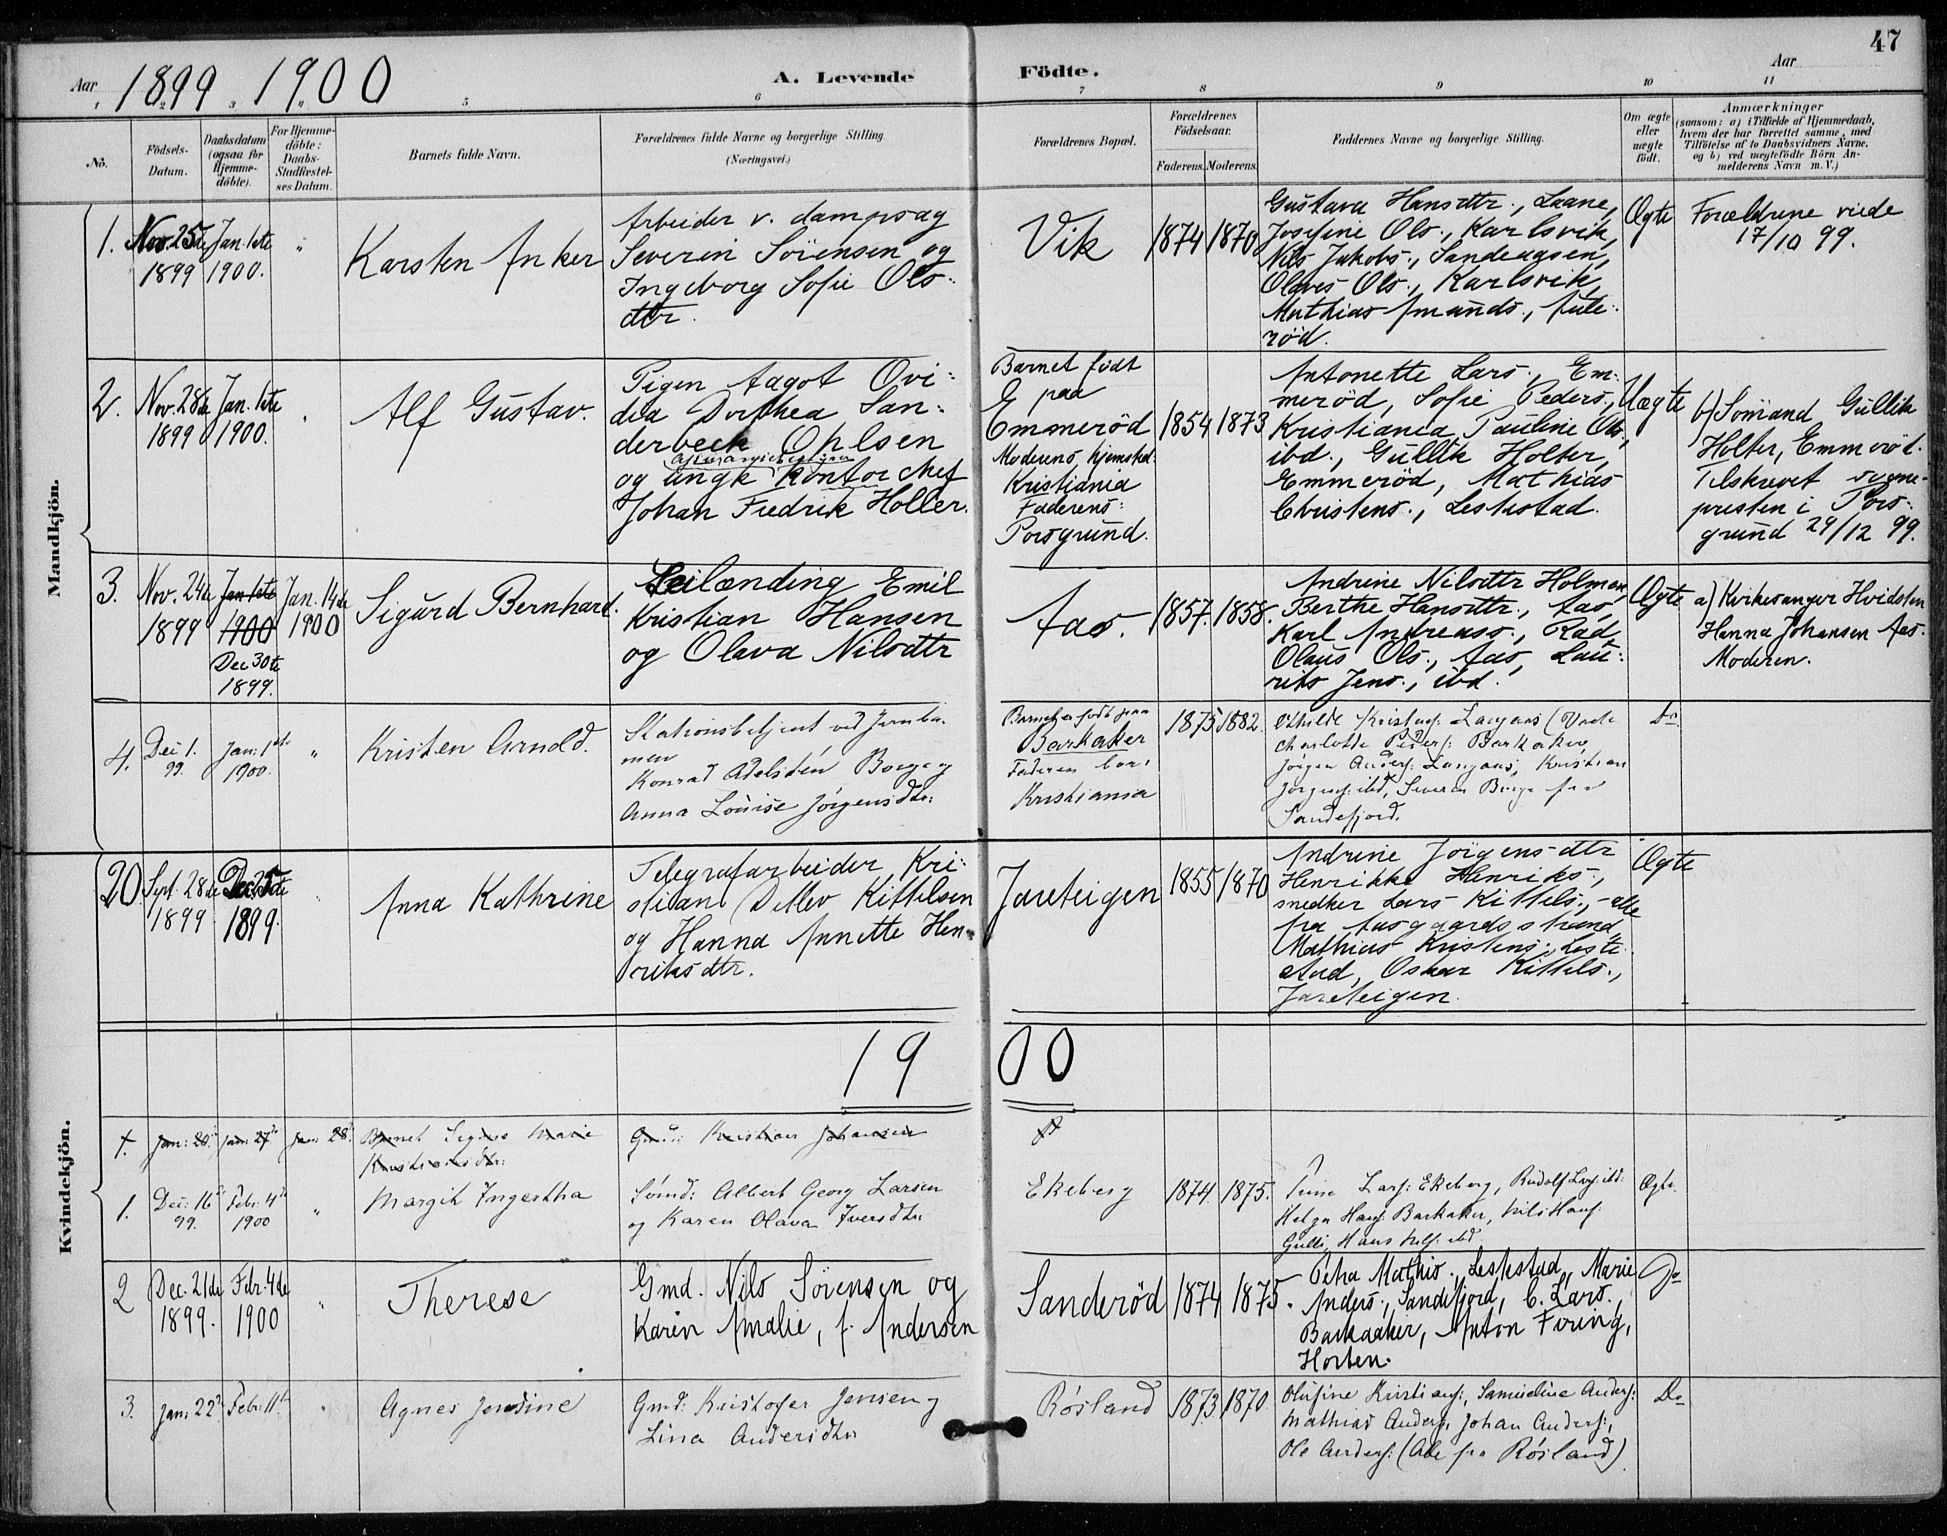 47
Aar 1899 1900
A. Levende Födte.
Aar
1 2 3 4 5 6 7 8 9 10 11
No.
Födsels-Datum.
Daabsdatum (ogsaa for Hjemme-döbte).
For Hjemme-döbte: Daabs-Stadfæstel-ses Datum.
Barnets fulde Navn.
Forældrenes fulde Navne og borgerlige Stilling. (Næringsvei.)
Forældrenes Bopæl.
Forældrenes Födselsaar.
Faderens. Moderens.
Faddernes Navne og borgerlige Stilling.
Om ægte eller uægte födt.
Anmærkninger (saasom: a) i Tilfælde af Hjemmedaab, hvem der har forrettet samme, med Tilföielse af to Daabsvidners Navne, og b) ved uægtefödte Börn An-melderens Navn m. V.)
Mandkjön.
1.
Nov. 25de
1899
Jan. 1ste
1900.
"
Karsten Anker
Arbeider v. dampsag
Severin Sörensen og
Ingeborg Sofie Ols-
dtr.
Vik
1874
1870
Gustava Hansdtr., Laane,
Josefine Ols., Karlsvik,
Nils Jakobs.,
Olaves Ols., Karlsvik,
Mathias Amunds., Aule-
röd.
Ægte
Forældrene viede
17/10 99.
2.
Nov. 28de
1899
Jan. 1ste
1900.
"
Alf Gustav.
Pigen Aagot Ovi-
dia Dorthea San-
derbeck Ohlsen
og ungk kontorchef
Johan Fredrik Holler.
Barnet födt
paa
Emmeröd
Moderens hjemsted:
Kristiania
Faderens:
Porsgrund.
1854
1873
Antonette Lars., Em-
meröd, Sofie Peders.,
Kristiania, Pauline Ols.,
ibd., Gullik Holter,
Emmeröd, Mathias
Christens., Lestestad.
Uægte
b) Sömand Gullik
Holter, Emmeröd.
Tilskrevet sogne-
presten i Pors-
grund 29/12 99.
3.
Nov. 24de
1899
Jan 1ste
1900
Dec 30te
1899.
Jan. 14de
1900
Sigurd Bernhard.
Leilænding Emil
Kristian Hansen
og Olava Nilsdtr
Aas.
1857.
1858.
Andrine Nilsdtr Holmen
Berthe Hansdtr., Aas,
Karl Andreass., Rød,
Olaus Ols., Aas, Lau-
rits Jens., ibd.
Ægte
a) Kirkesanger Hvidsten
Hanna Johansen Aas.
Moderen.
4.
Dec 1.
99.
Jan: 1ste
1900.
"
Kristen Arnold.
Stationsbetjent ved Jernba-
nen
Konrad Adelsten Borge og
Anna Louise Jörgensdtr:
Barnet er födt paa
Barkaker
Faderen bor i
Kristiania
1875
1882.
Charlotte Peders: Barkaker,
Jörgen Anders: Langaas, Kristian
Jörgens: ibd, Severin Borge fra
Sandefjord.
Do
Kvindekjön.
20
Sept. 28de
1899
Dec. 25de
1899.
"
Anna Kathrine
Telegrafarbeider Kri-
stian Detlev Kittilsen
og Hanna Annette Hen-
riksdtr.
Jareteigen
1855
1870
Andrine Jörgens-dtr
Henrikke Henriks.,
snedker Lars Kittels., - alle
fra Aasgaardsstrand
Mathias Kristens., Leste-
stad, Oskar Kittels.,
Jareteigen.
Ægte
1900
1.
Jan: 20.
Jan: 27de
Jan: 28de
Barnet Signe Marie
Kristiansdtr:
Gmd: Kristian Johansen
1.
Dec: 16de
99.
Febr: 4de
1900
"
Margit Ingertha
Sömd: Albert Georg Larsen
og Karen Olava Iversdtr:
Ekeberg
1874.
1875.
Trine Lars: Ekeberg, Rudolf Lars: ibd:
Helga Hans: Barkaker, Nils Hans:
Gulli, Hans Nils: ibd
Ægte.
2
Dec. 21de
1899.
Febr. 4de
1900
"
Therese
Gmd. Nils Sörensen og
Karen Amalie, f. Andersen
Sanderöd
1874
1875.
Petra Mathis. Lestestad, Marie
Anders., Sandefjord, C. Lars.,
Barkaaker, Anton Firing,
Horten.
Do
3.
Jan: 22de
Febr: 11te
"
Agnes Jensine
Gmd: Kristofer Jensen og
Lina Andersdtr:
Rösland
1873
1870
Olufine Kristians:, Samueline Anders:
Mathias Anders, Johan Anders:,
Ole Anders: (Alle fra Rösland)
Do